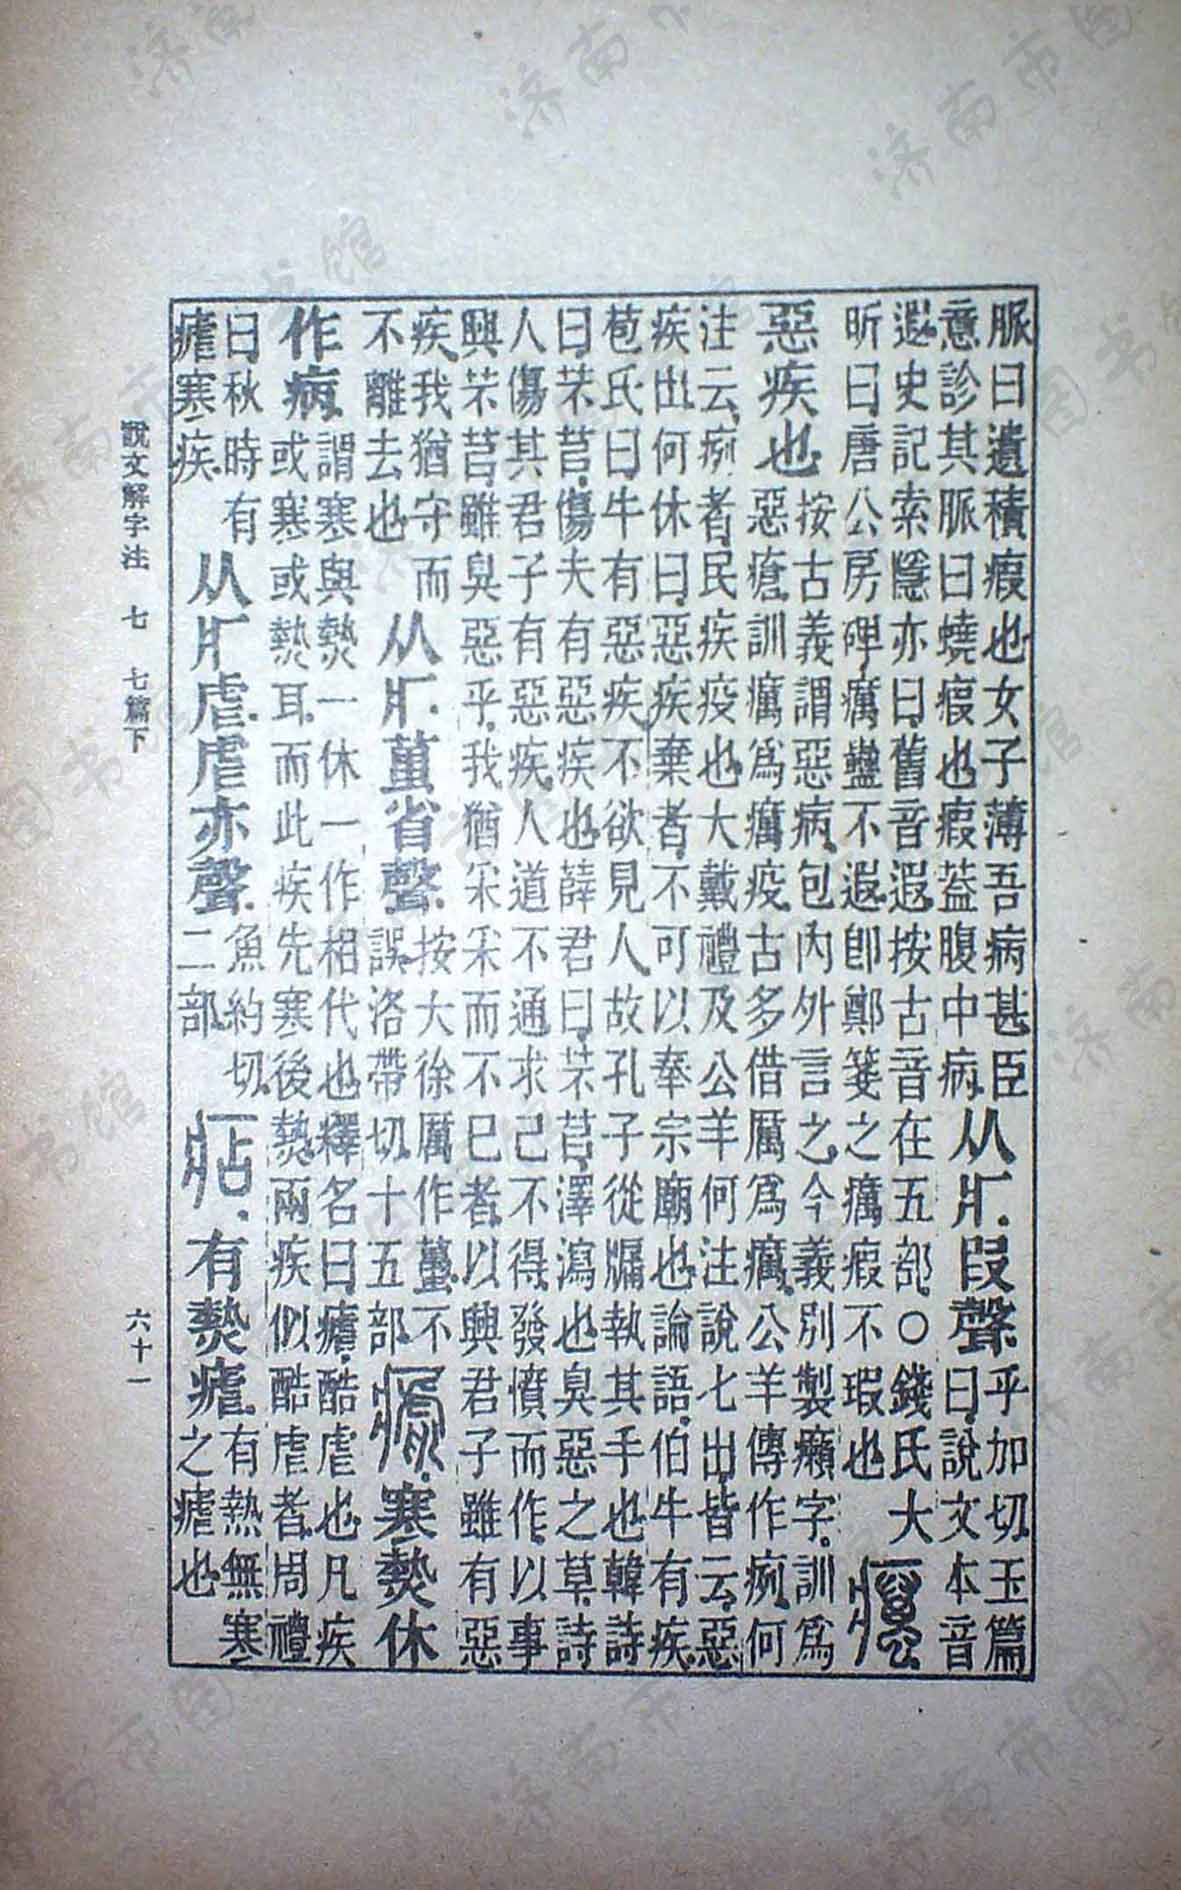 脈曰遺積瘕也女子薄吾病甚臣
意診其脈曰蟯瘕也瘕蓋腹中病
从疒叚聲
乎加切玉篇
曰說文本音
遐史記索隱亦曰舊音遐按古音在五部○錢氏大
昕曰唐公房碑癘蠱不遐卽鄭箋之癘瘕不瑕也
癘
惡疾也
按古義謂惡病包內外言之今義別製癩字訓爲
惡瘡訓癘爲癘疫古多借厲爲癘公羊傳作㾐何
注云㾐者民疾疫也大戴禮及公羊何注說七出皆云惡
疾出何休曰惡疾棄者不可以奉宗廟也論語伯牛有疾
苞氏曰牛有惡疾不欲見人故孔子從牖執其手也韓詩
曰芣苢傷夫有惡疾也薛君曰芣苢澤瀉也臭惡之草詩
人傷其君子有惡疾人道不通求己不得發憤而作以事
興芣苢雖臭惡乎我猶采采而不已者以興君子雖有惡
疾我猶守而
不離去也
从疒萬省聲
按大徐厲作蠆不
誤洛帶切十五部
瘧寒熱休
作病
謂寒與熱一休一作相代也釋名曰瘧酷虐也凡疾
或寒或熱耳而此疾先寒後熱兩疾似酷虐者周禮
曰秋時有
瘧寒疾
从疒虐虐亦聲
魚約切
二部
痁有熱瘧
有熱無寒
之瘧也
說文解字注 七 七篇下 六十一
济南市图书馆